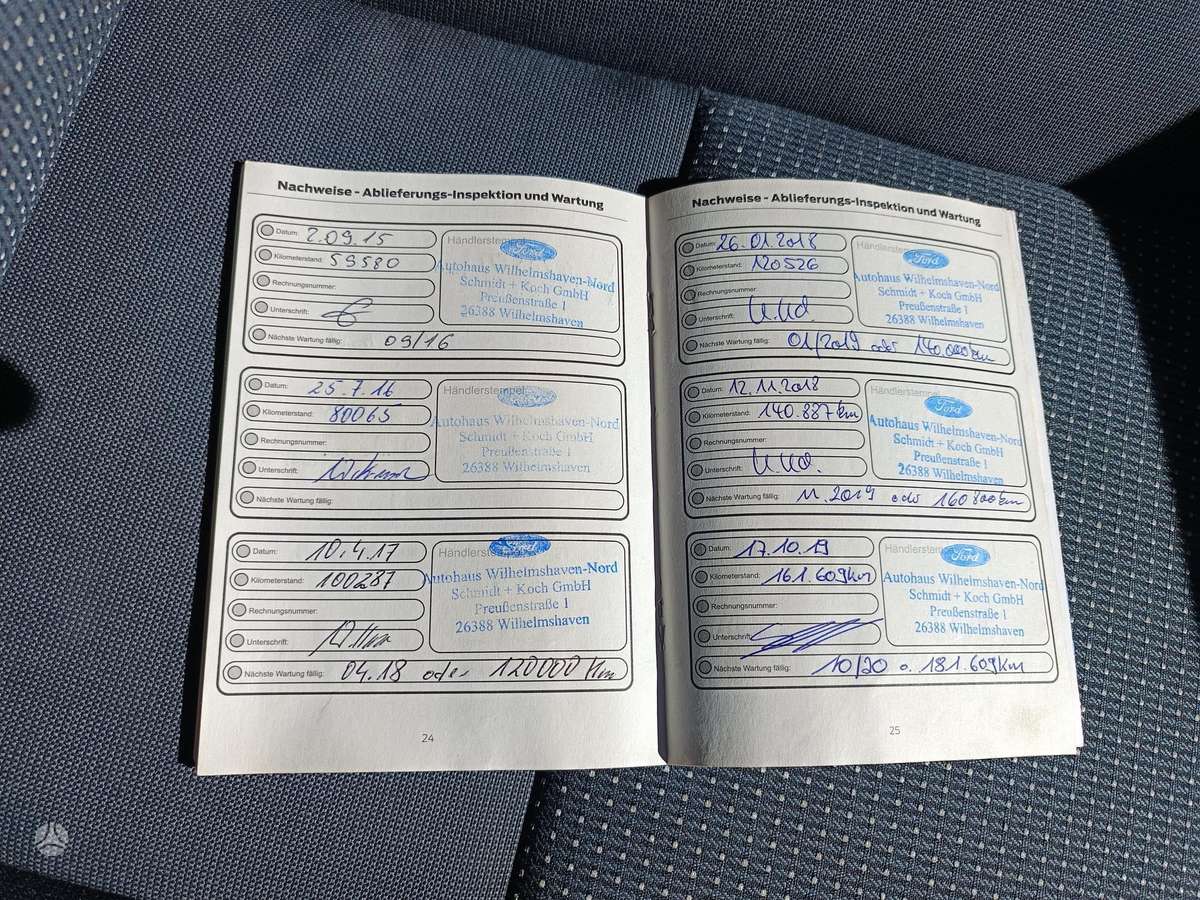 Nachweise - Ablieferungs-Inspektion und Wartung
Datum: 2.09.15
Kilometerstand: 59580
Rechnungsnummer:
Unterschrift:
Nächste Wartung fällig: 09/16
Händlerstempel
Ford
Autohaus Wilhelmshaven-Nord
Schmidt + Koch GmbH
Preußenstraße 1
26388 Wilhelmshaven
Datum: 25.7.16
Kilometerstand: 80065
Rechnungsnummer:
Unterschrift:
Nächste Wartung fällig:
Händlerstempel
Ford
Autohaus Wilhelmshaven-Nord
Schmidt + Koch GmbH
Preußenstraße 1
26388 Wilhelmshaven
Datum: 10.4.17
Kilometerstand: 100287
Rechnungsnummer:
Unterschrift:
Nächste Wartung fällig: 04.18 oder 120000 km
Händlerstempel
Ford
Autohaus Wilhelmshaven-Nord
Schmidt + Koch GmbH
Preußenstraße 1
26388 Wilhelmshaven
24
Nachweise - Ablieferungs-Inspektion und Wartung
Datum: 26.01.2018
Kilometerstand: 120526
Rechnungsnummer:
Unterschrift:
Nächste Wartung fällig: 01/2019 oder 140 000 km
Händlerstempel
Ford
Autohaus Wilhelmshaven-Nord
Schmidt + Koch GmbH
Preußenstraße 1
26388 Wilhelmshaven
Datum: 12.11.2018
Kilometerstand: 140.887 km
Rechnungsnummer:
Unterschrift:
Nächste Wartung fällig: 11.2019 oder 160 800 km
Händlerstempel
Ford
Autohaus Wilhelmshaven-Nord
Schmidt + Koch GmbH
Preußenstraße 1
26388 Wilhelmshaven
Datum: 17.10.19
Kilometerstand: 161.609 km
Rechnungsnummer:
Unterschrift:
Nächste Wartung fällig: 10/20 o. 181.609 km
Händlerstempel
Ford
Autohaus Wilhelmshaven-Nord
Schmidt + Koch GmbH
Preußenstraße 1
26388 Wilhelmshaven
25